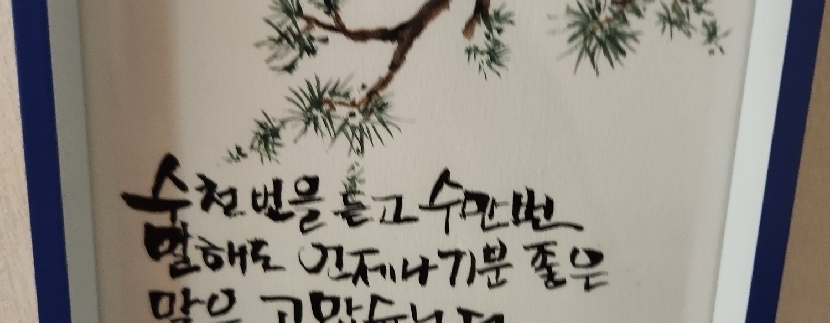 수천 번을 듣고 수만번
말해도 언제나 기분 좋은
말은 고맙습니다